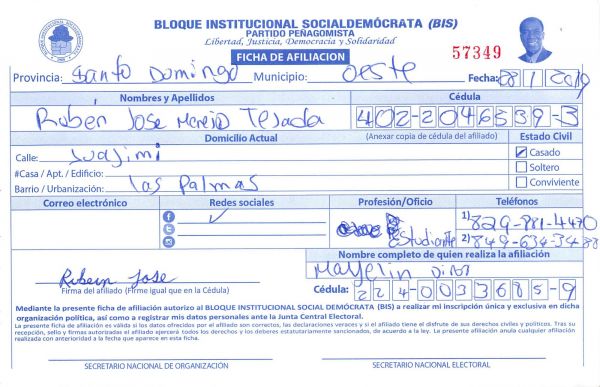 BLOQUE INSTITUCIONAL SOCIALDEMÓCRATA (BIS)
PARTIDO PEÑAGOMISTA
Libertad, Justicia, Democracia y Solidaridad
FICHA DE AFILIACION
57349
Provincia: Santo Domingo Municipio: Oeste Fecha: 08/1/2019
Nombres y Apellidos Cédula
Rubén Jose Merejo Tejada 402-2046339-3
Domicilio Actual (Anexar copia de cédula del afiliado) Estado Civil
Calle: Guajimi Casado
#Casa / Apt. / Edificio: Soltero
Barrio / Urbanización: Las Palmas Conviviente
Correo electrónico Redes sociales Profesión/Oficio Teléfonos
Estudiante
1) 829-981-4470
2) 849-634-3488
Nombre completo de quien realiza la afiliación
Mayelin
Ruben Jose
Firma del afiliado (Firme igual que en la Cédula)
Cédula: 224-0033685-9
Mediante la presente ficha de afiliación autorizo al BLOQUE INSTITUCIONAL SOCIAL DEMÓCRATA (BIS) a realizar mi inscripción única y exclusiva en dicha
organización política, así como a registrar mis datos personales ante la Junta Central Electoral.
La presente ficha de afiliación es válida si los datos ofrecidos por el afiliado son correctos, las declaraciones veraces y si el afiliado tiene el disfrute de sus derechos civiles y políticos. Tras su
recepción, sello y firmas autorizadas el afiliado ejercerá todos los derechos y los deberes estatutariamente sancionados, de acuerdo a la ley. La presente afiliación anula cualquier afiliación
realizada con anterioridad a la fecha que aparece en esta ficha.
SECRETARIO NACIONAL DE ORGANIZACIÓN SECRETARIO NACIONAL ELECTORAL